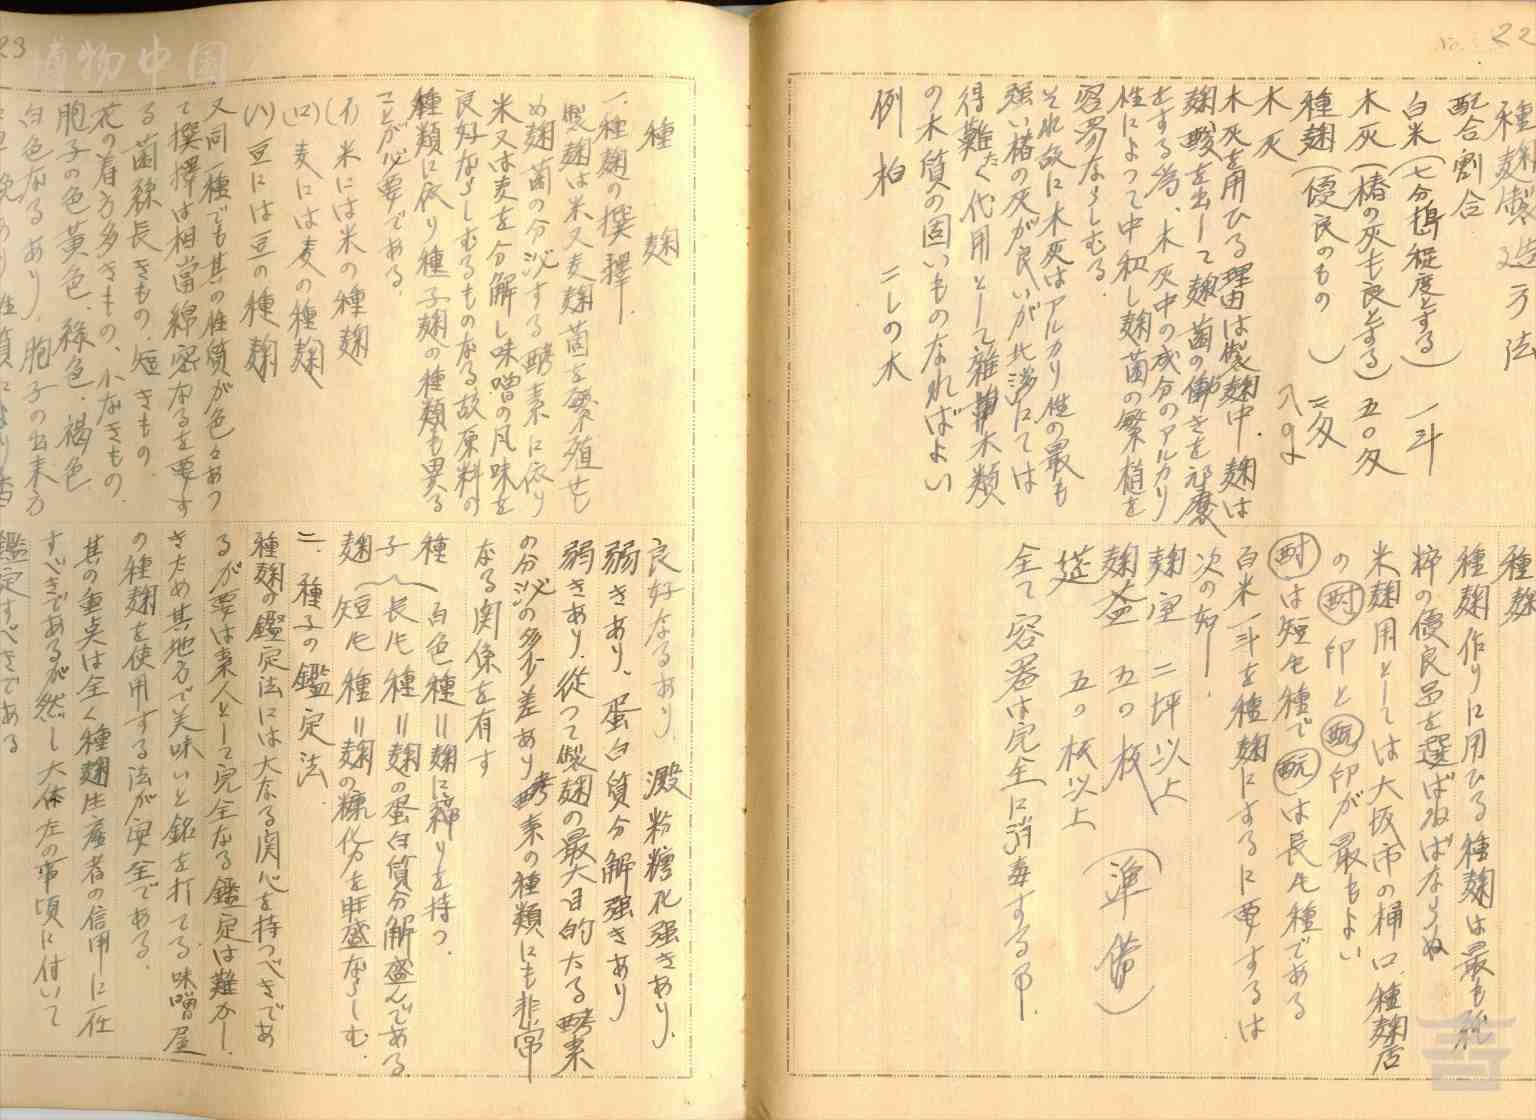 22
種麹製造方法
配合割合
白米(七分搗程度とする) 一斗
木灰(椿の灰も良とする) 五〇匁
種麹(優良のもの) 二匁
木灰
木灰を用ひる理由は製麹中、麹は
麹酸を出して麹菌の働きを邪魔
をする為、木灰中の成分のアルカリ
性によって中和し麹菌の繁植を
容易ならしむる。
それ故に木灰はアルカリ性の最も
強い椿の灰が良いが北満にては
得難く代用として雑木類
の木質の固いものなればよい
例 柏 ニレの木
種麹
種麹作りに用ひる種麹は最も純
粋の優良品を選ばねばならぬ
米麹用としては大坂市の樋口種麹店
の 印と 印が最もよい
は短毛種で は長毛種である
白米一斗を種麹にするに要するは
次の如し、
麹室 二坪以上
麹蓋 五〇枚
莚 五〇枚以上
(準備)
全て容器は完全に消毒する事.
23
博物中国
種麹
一.種麹の撰擇.
製麹は米又麦麹菌を繁殖せし
め麹菌の分泌する酵素に依り
米又は麦を分解し味噌の風味を
良好ならしむるものなる故原料の
種類に依り種子麹の種類も異る
ことが必要である.
(イ) 米には米の種麹
(ロ) 麦には麦の種麹
(ハ) 豆には豆の種麹
又同一種でも其の性質が色々あつ
て撰擇は相當綿密なるを要す
る菌絲長きもの、短きもの.
花の着方多きもの、小なきもの.
胞子の色黄色、緑色、褐色
白色なるあり、胞子の出来方
良好なるあり、澱粉糖化强きあり、
弱きあり、蛋白質分解强きあり
弱きあり、從つて製麹の最大目的たる酵素
の分泌の多少差あり酵素の種類にも非常
なる関係を有す
種子麹
白色種=麹に 持つ.
長毛種=麹の蛋白質分解盛んである
短毛種=麹の糖化力を旺盛ならしむ.
二. 種子の鑑定法.
種麹の鑑定法には大なる関心を持つべきであ
るが要は素人として完全なる鑑定は難かし.
きため其地方で美味いと銘を打てる味噌屋
の種麹を使用する法が安全である.
其の重点は全く種麹生産者の信用に任
すべきであるが然し大体左の事項に付いて
鑑定すべきである